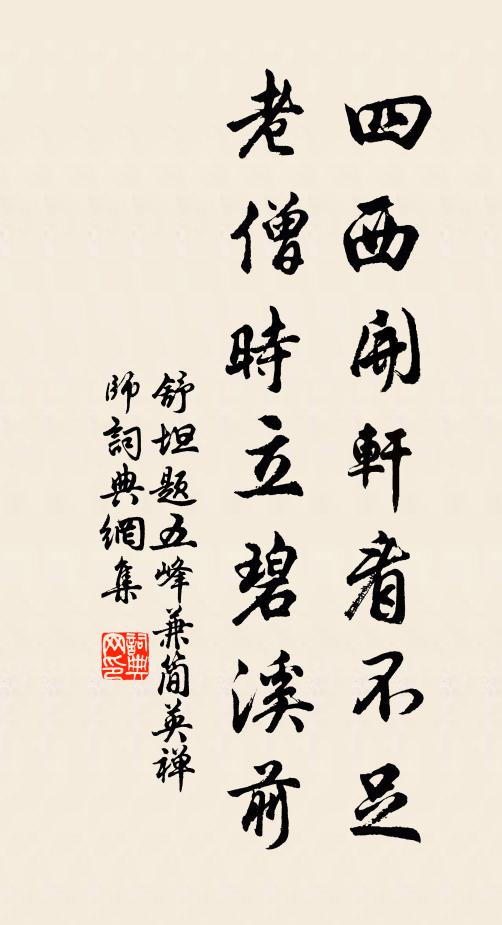 四西開軒看不足
老僧時立碧溪前
舒坦题五峰兼简英禅
師詞典網集
詞典
网印